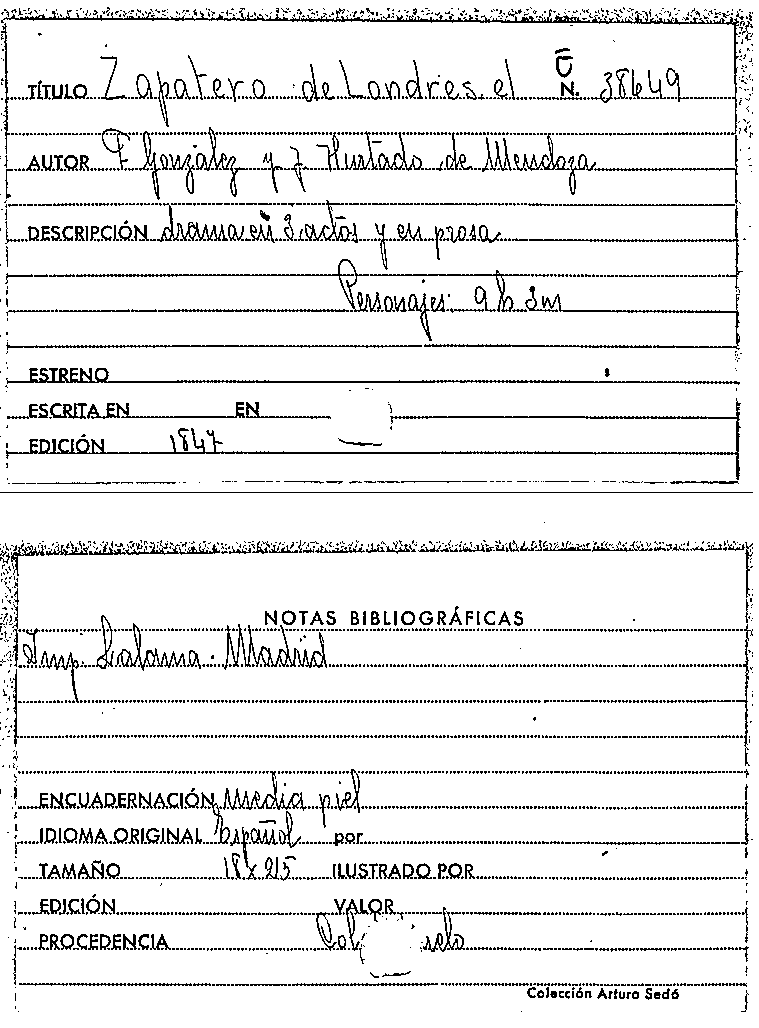 TÍTULO Zapatero de Londres, el N. 38649
AUTOR F González y J Hurtado de Mendoza
DESCRIPCIÓN drama en 3 actos y en prosa
Personajes: 9 h 3m
ESTRENO
ESCRITA EN EN
EDICIÓN 1847
NOTAS BIBLIOGRÁFICAS
Imp. Lalama. Madrid
ENCUADERNACIÓN Media piel
IDIOMA ORIGINAL Español por
TAMAÑO ILUSTRADO POR
EDICIÓN VALOR
PROCEDENCIA
Colección Arturo Sedó